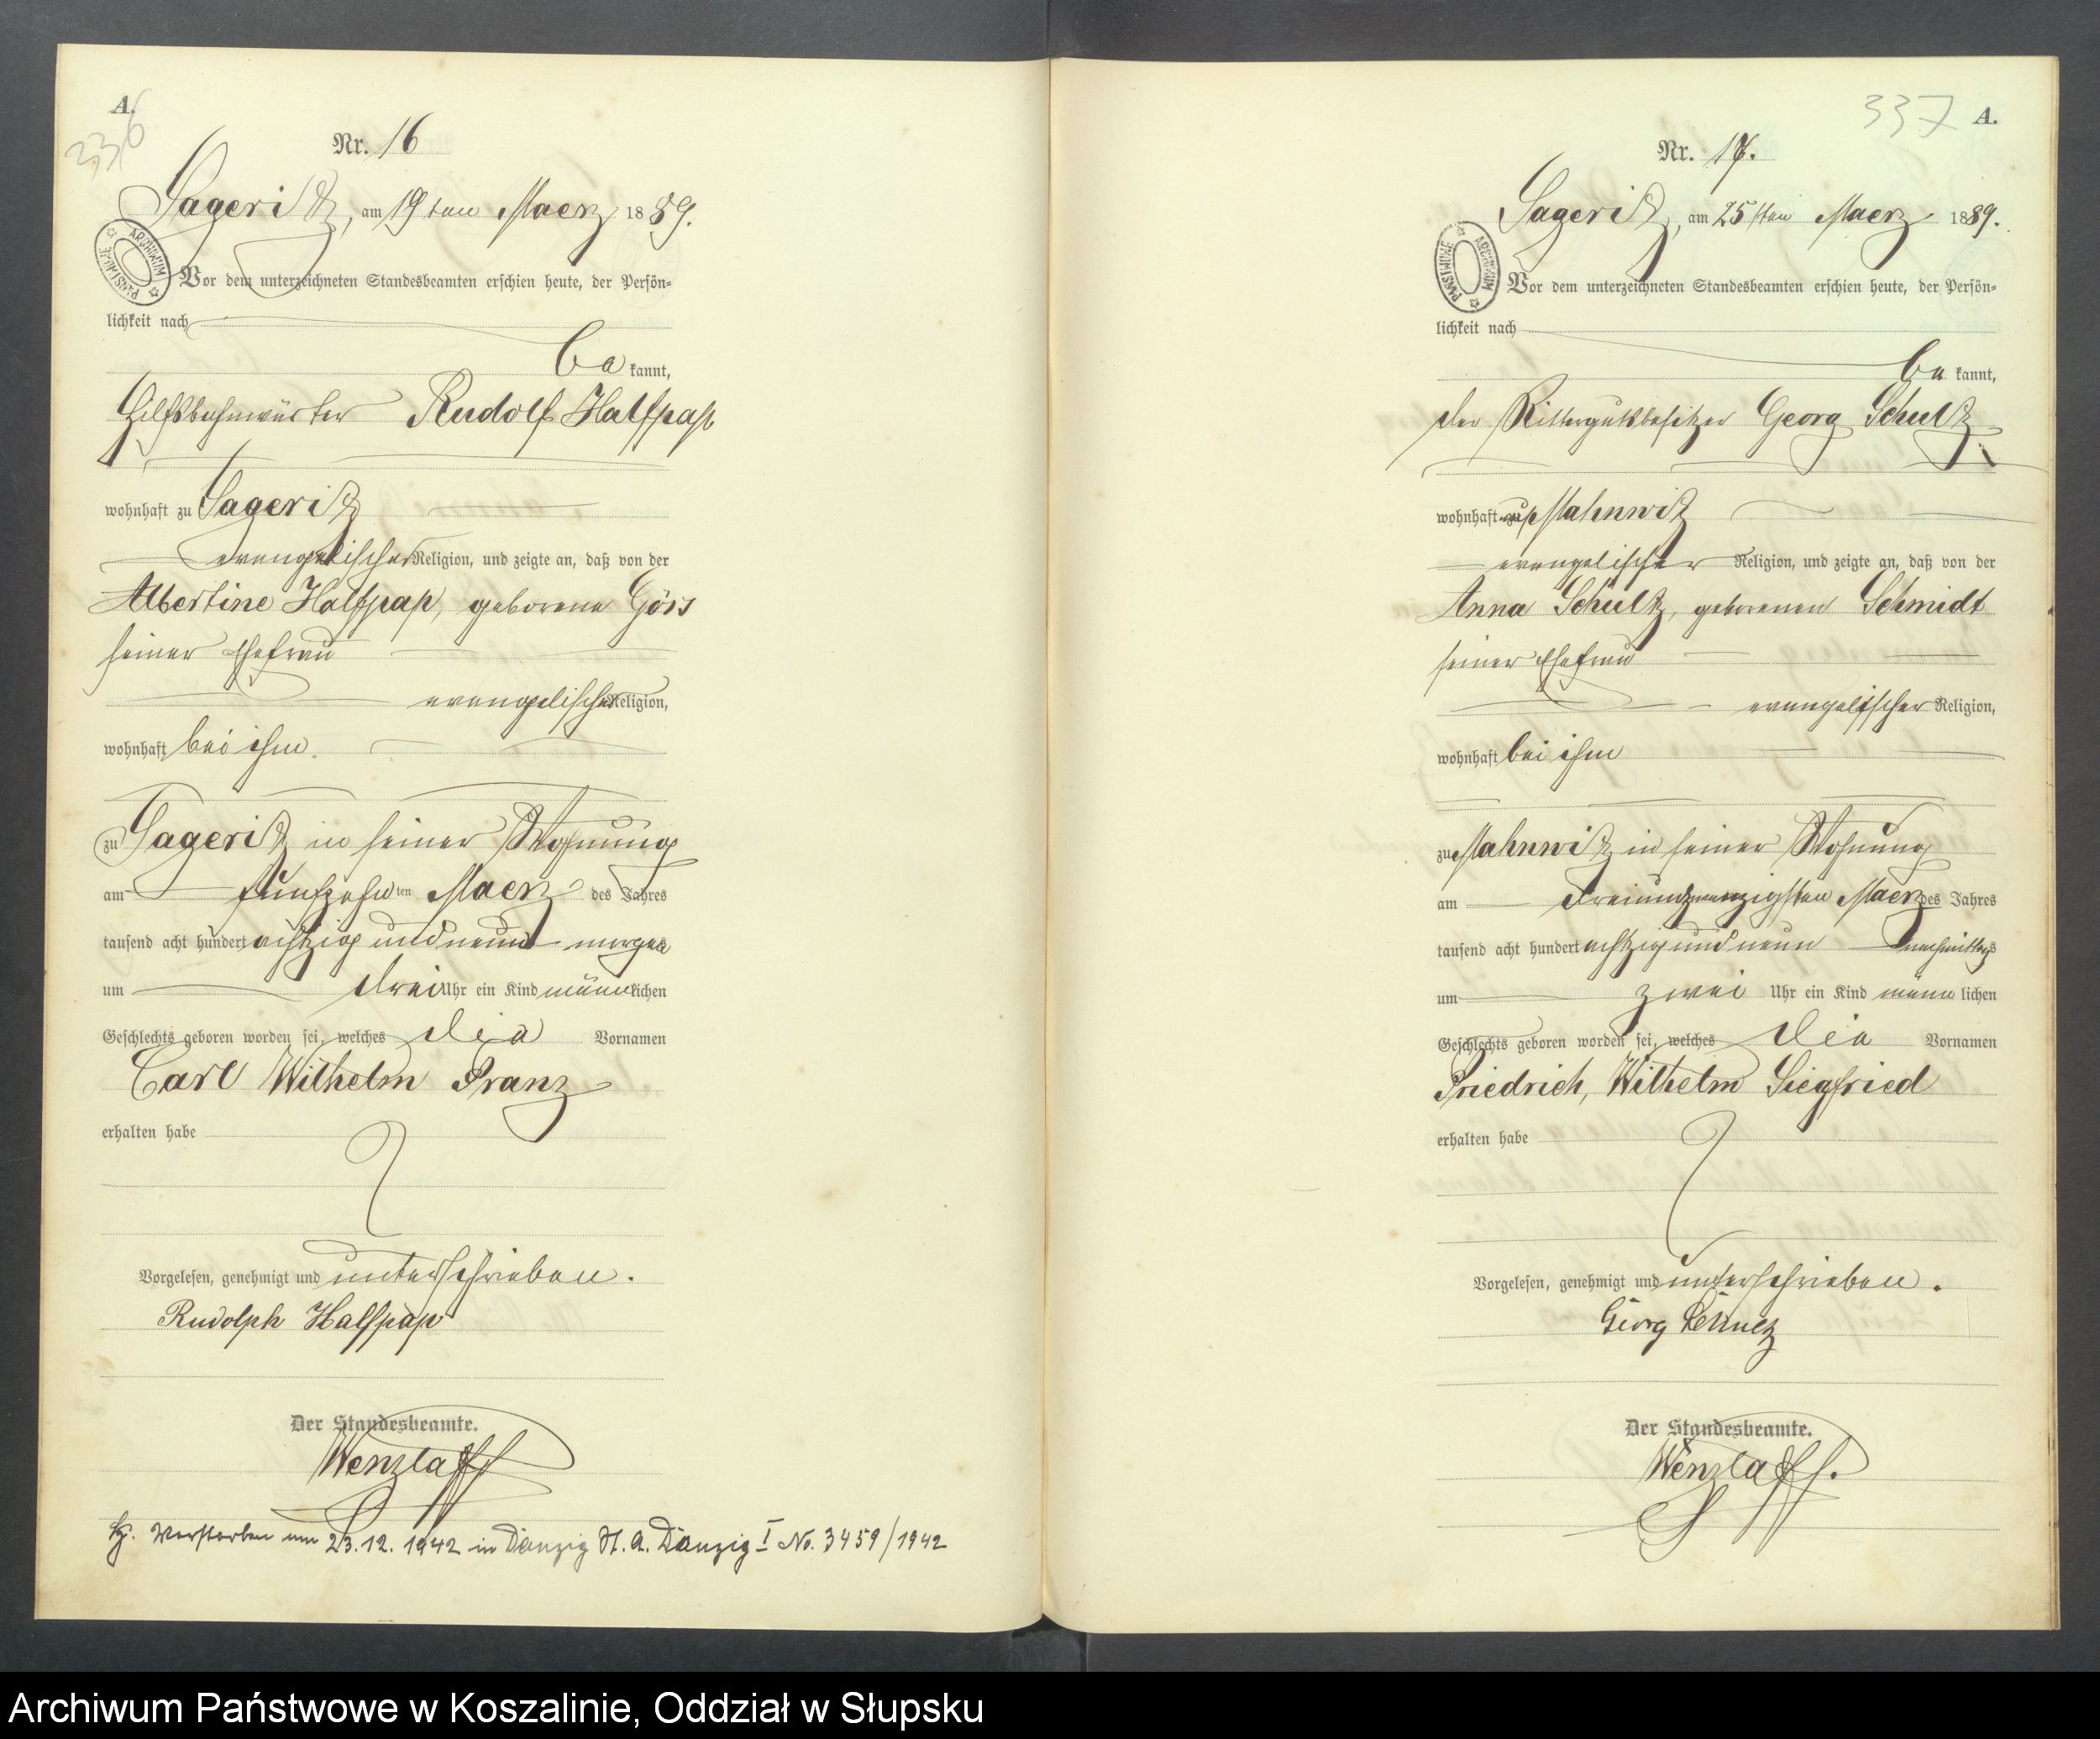 A.
336
Nr. 16
Sageritz, am 19ten Maerz 1889.
ARCHIWUM PAŃSTWOWE
Vor dem unterzeichneten Standesbeamten erschien heute, der Persön-
lichkeit nach
be kannt,
Hilfsbahnwärter Rudolf Halfpap
wohnhaft zu Sageritz
evangelischer Religion, und zeigte an, daß von der
Albertine Halfpap, geborene Göss
seiner Ehefrau
evangelischer Religion,
wohnhaft bei ihm
zu Sageritz in seiner Wohnung
am fünfzehnten Maerz des Jahres
tausend acht hundert achtzig und neun morgens
um drei Uhr ein Kind männlichen
Geschlechts geboren worden sei, welches die Vornamen
Carl Wilhelm Franz
erhalten habe
Vorgelesen, genehmigt und unterschrieben.
Rudolph Halfpap
Der Standesbeamte.
Wenzlaff
Verstorben am 23.12.1942 in Danzig St. A. Danzig I No. 3459/1942
337 A.
Nr. 17.
Sageritz, am 25sten Maerz 1889.
ARCHIWUM PAŃSTWOWE
Vor dem unterzeichneten Standesbeamten erschien heute, der Persön-
lichkeit nach
be kannt,
der Rittergutsbesitzer Georg Schultz
wohnhaft zu Mahnwitz
evangelischer Religion, und zeigte an, daß von der
Anna Schultz, geborenen Schmidt
seiner Ehefrau
evangelischer Religion,
wohnhaft bei ihm
zu Mahnwitz in seiner Wohnung
am dreiundzwanzigsten Maerz des Jahres
tausend acht hundert achtzig und neun nachmittags
um zwei Uhr ein Kind männlichen
Geschlechts geboren worden sei, welches die Vornamen
Friedrich, Wilhelm Siegfried
erhalten habe
Vorgelesen, genehmigt und unterschrieben.
Georg Schultz
Der Standesbeamte.
Wenzlaff.
Archiwum Państwowe w Koszalinie, Oddział w Słupsku